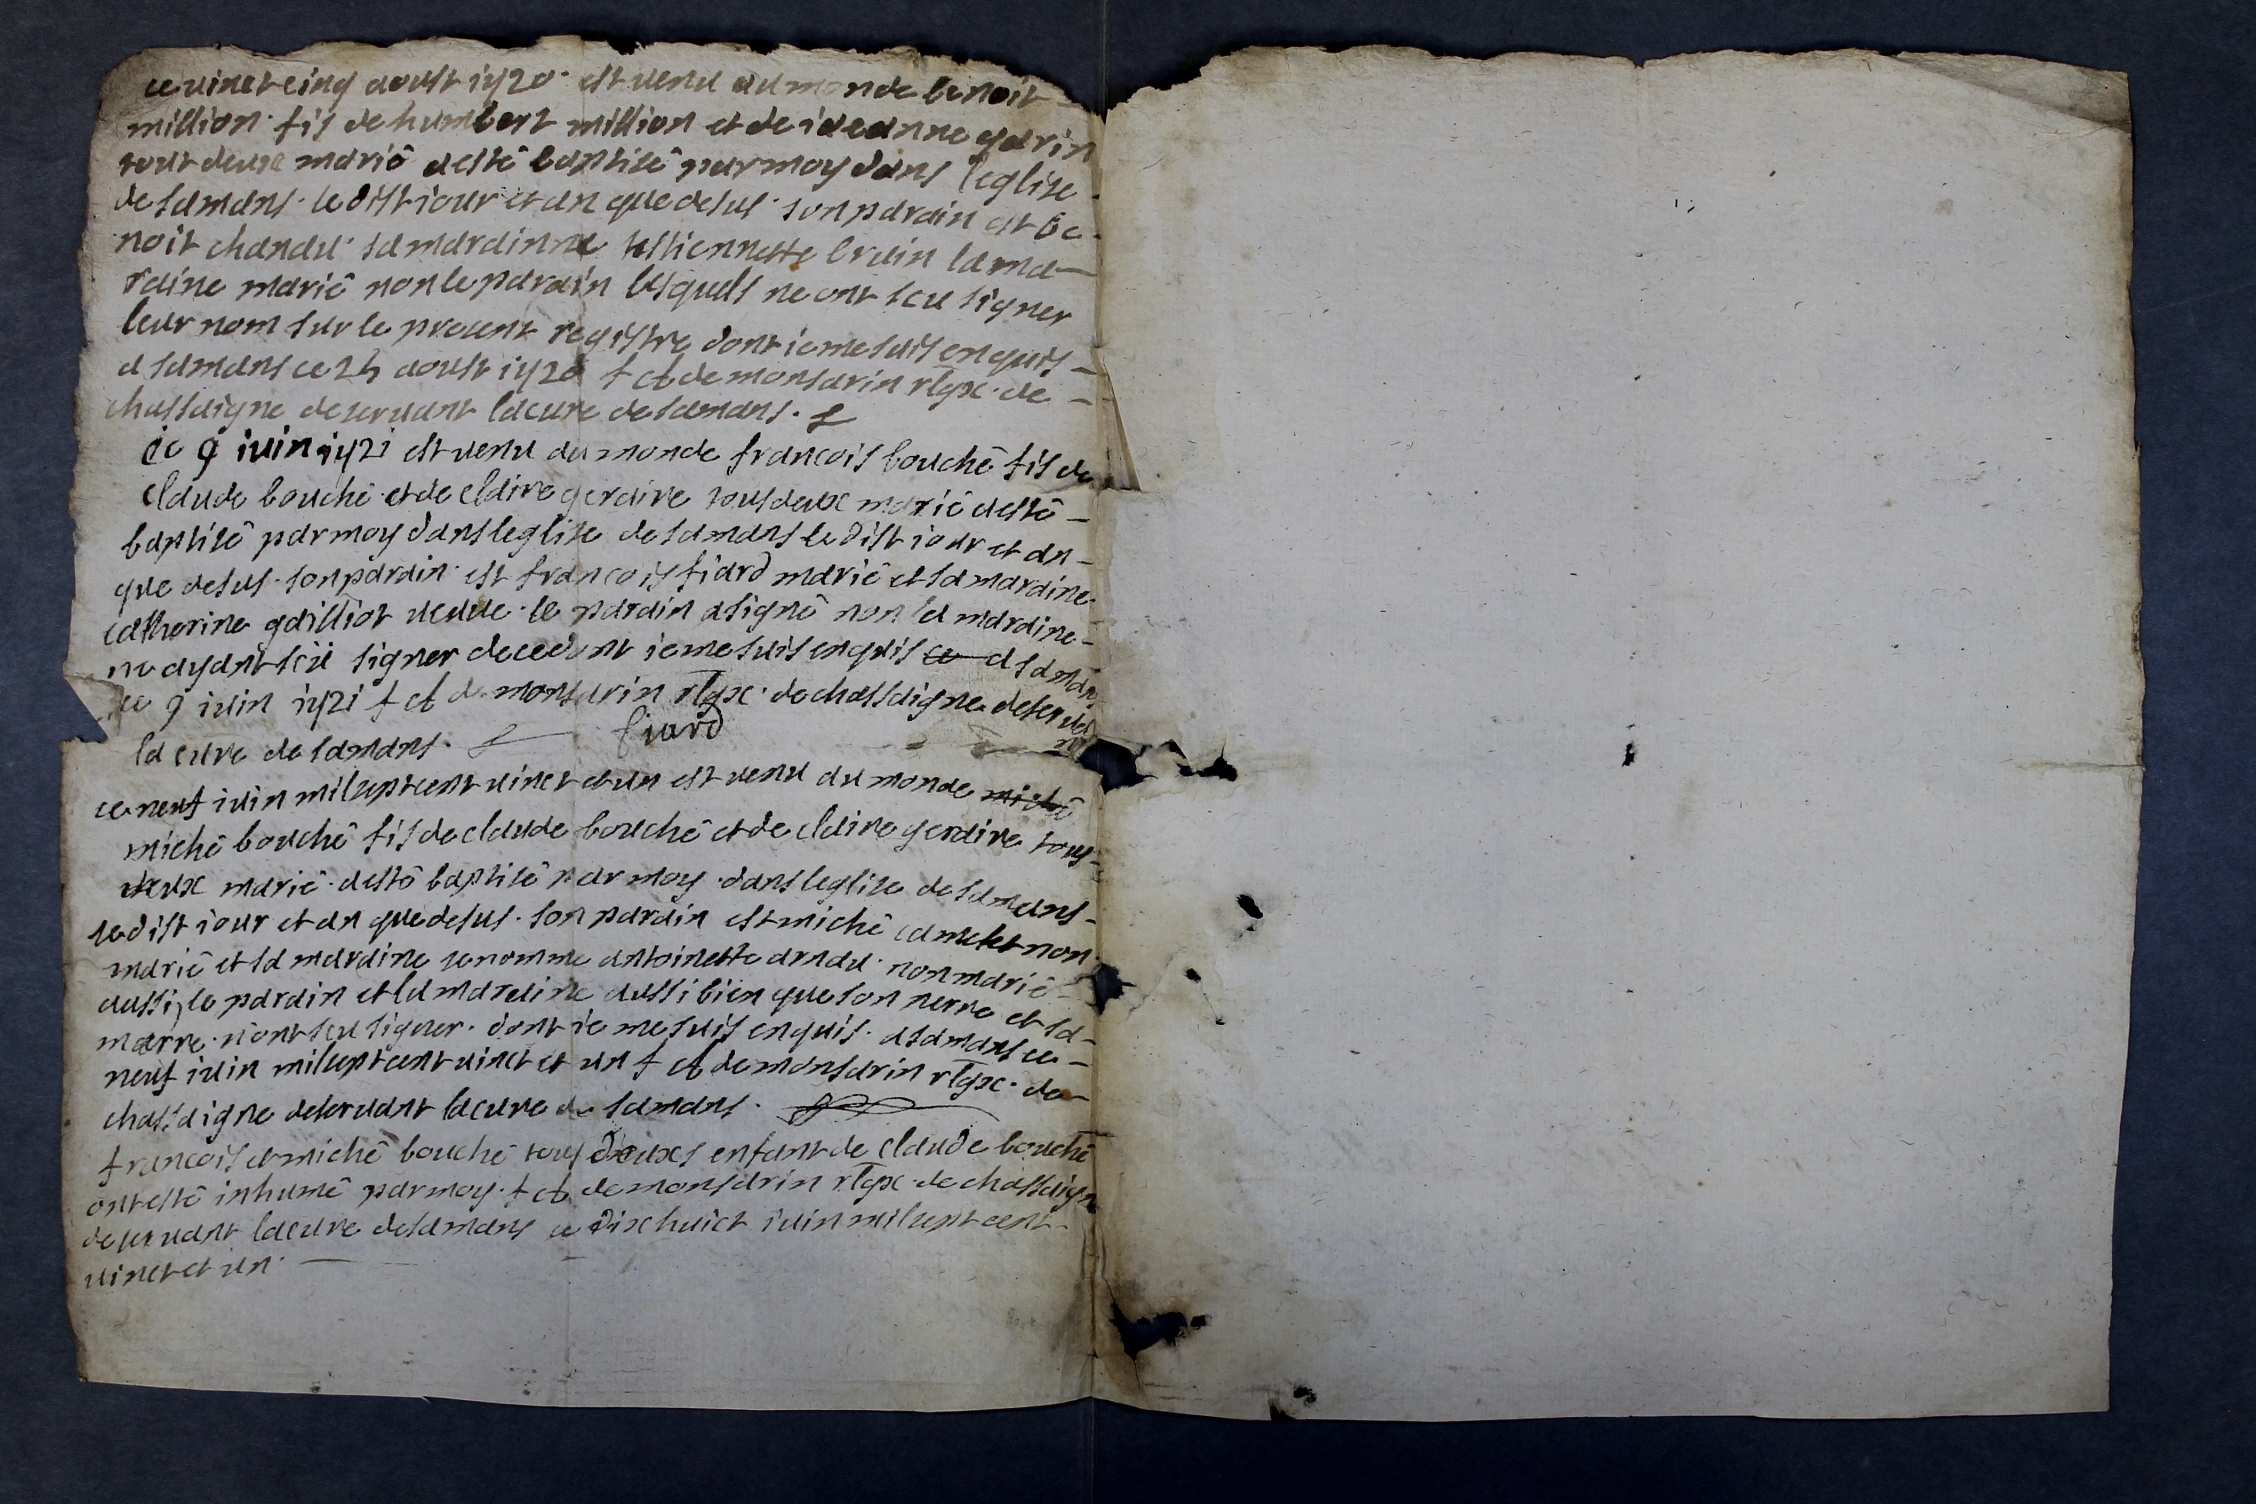 ce vinct cinq aoust 1720 est venu au monde benoit
million fis de humbert million et de ideanne garin
tout deux marié aesté baptisé par moy dans leglise
de samans le dist iour et an que desus son parain est be
noit chanau sa maraînne testiennette bruin la ma
raine marié non le parain lesquels ne ont sceu signer
leur nom sur le procent registre dont ie me suis enquis
a samans ce 25 aoust 1720 f cl de monsarin rlgx de
chassaigne deservant la cure de samans
ce 9 iuin 1721 est venu au monde francois bouché fis de
claude bouché et de claire geraire tous deux marié aesté
baptisé par moy dans leglise de samans le dist iour et an
que desus son parain est francois fiard marié et sa maraine
catherine gailliot veuve le parain a signé non la maraine
ne ayant sceu signer de ce dont ie me suis enquis ce a saman
ce 9 iuin 1721 f cl de monsarin rlgx de chassaigne deserva
nt
la cure de samans fiard
ce neuf iuin mil sept cent vinct et un est venu au monde miché
miché bouché fis de claude bouché et de claire geraire tous
deux marié aesté baptisé par moy dans leglise de samans
le dist iour et an que desus son parain est miché camelet non
marié et sa maraine se nomme antoinette arnau non marié
aussi, le parain et la maraine aussi bien que son perre et sa
maerre n'ont sceu signer dont ie me suis enquis a samans ce
neuf iuin mil sept cent vinct et un f cl de monsarin rlgx de
chassaigne deservant la cure de samans
francois et miché bouché tous deuxs enfant de claude bouché
ont esté inhumé par moy f cl de monsarin rlgx de chassaign
deservant la cure de samans ce dix huict iuin mil sept cent
vinct et un